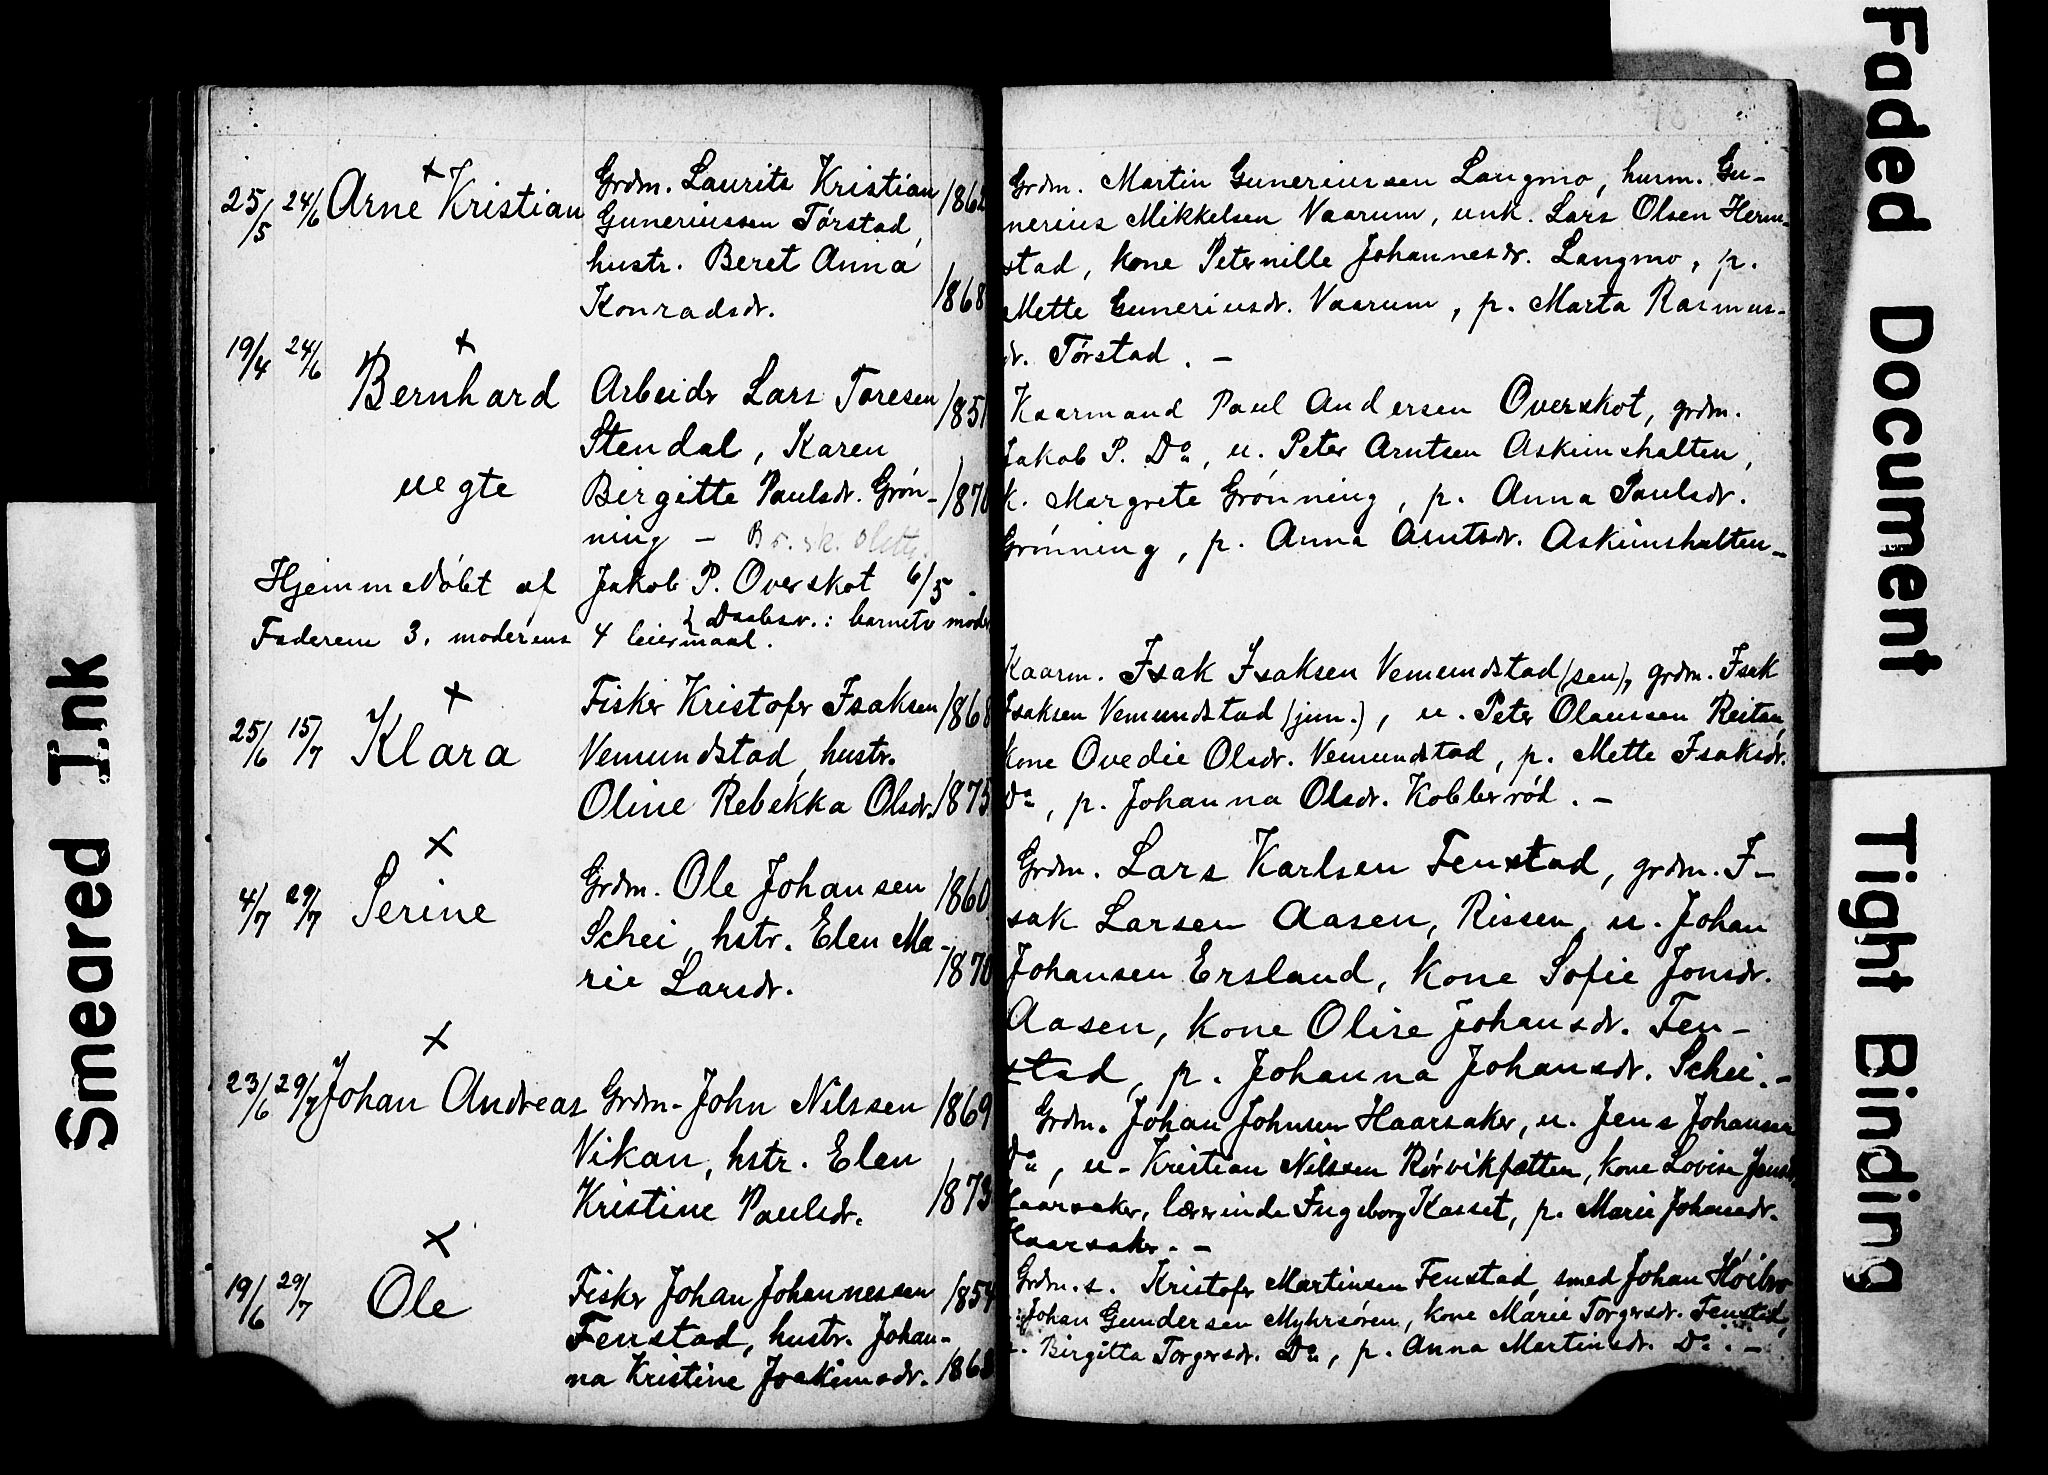 25/5 24/6 Arne Kristian
Grdm. Laurits Kristian 1862
Guneriussen Tørstad,
hustr. Beret Anna
Konradsdr. 1868
Grdm. Martin Guneriussen Langmo, husm. Gu-
nerius Mikkelsen Vaarum, unk. Lars Olsen Herm-
stad, kone Peternille Johannesdr. Langmo, p.
Mette Guneriusdr. Vaarum, p. Marta Rasmus-
dr. Tørstad. —
19/4 24/6 Bernhard
uegte
Arbeidr Lars Toresen 1851
Stendal, Karen
Birgitte Paulsdr. Grøn- 1870
ning —
Hjemmedøbt af Jakob P. Overskot 6/5.
Daabsv.: barnets moder
Faderens 3. moderens 4 leiermaal.
Kaarmand Paul Andersen Overskot, grdm.
Jakob P. Do, u. Peter Arntsen Askimshalten,
k. Margrete Grønning, p. Anna Paulsdr.
Grønning, p. Anna Arntsdr. Askimshalten —
25/6 15/7 Klara
Fisker Kristofer Isaksen 1868
Vemundstad, hustr.
Oline Rebekka Olsdr. 1875
Kaarm. Isak Isaksen Vemundstad (sen), grdm. Isak
Isaksen Vemundstad (jun.), u. Peter Olaussen Reitan,
kone Ovedie Olsdr. Vemundstad, p. Mette Isaksdr.
Do, p. Johanna Olsdr. Kobberrød. —
4/7 29/7 Serine
Grdm. Ole Johansen 1860
Schei, hstr. Elen Ma-
rie Larsdr. 1870
Grdm. Lars Karlsen Fenstad, grdm. I-
sak Larsen Aasen, Rissen, u. Johan
Johansen Ersland, kone Sofie Jonsdr.
Aasen, kone Olise Johansdr. Fen-
stad, p. Johanna Johansdr. Schei. —
23/6 29/7 Johan Andreas
Grdm. John Nilssen 1869
Vikan, hstr. Elen
Kristine Paulsdr. 1873
Grdm. Johan Johnsen Haarsaker, u. Jens Johansen
Do, u. Kristian Nilssen Rørvikfætten, kone Lovise
Haarsaker, lærerinde Ingeborg Kasset, p. Marie Johansdr.
Haarsaker. —
19/6 29/7 Ole
Fisker Johan Johannessen 1854
Fenstad, hustr. Johan-
na Kristine Joakimsdr. 1868
Grdm.s. Kristofer Martinsen Fenstad, smed Johan Høibro
Johan Gundersen Myhrsøren, kone Marie Torgersdr. Fenstad,
Birgitta Torgersdr. Do, p. Anna Martinsdr. Do. —
Smeared Ink
Faded Document
Tight Binding